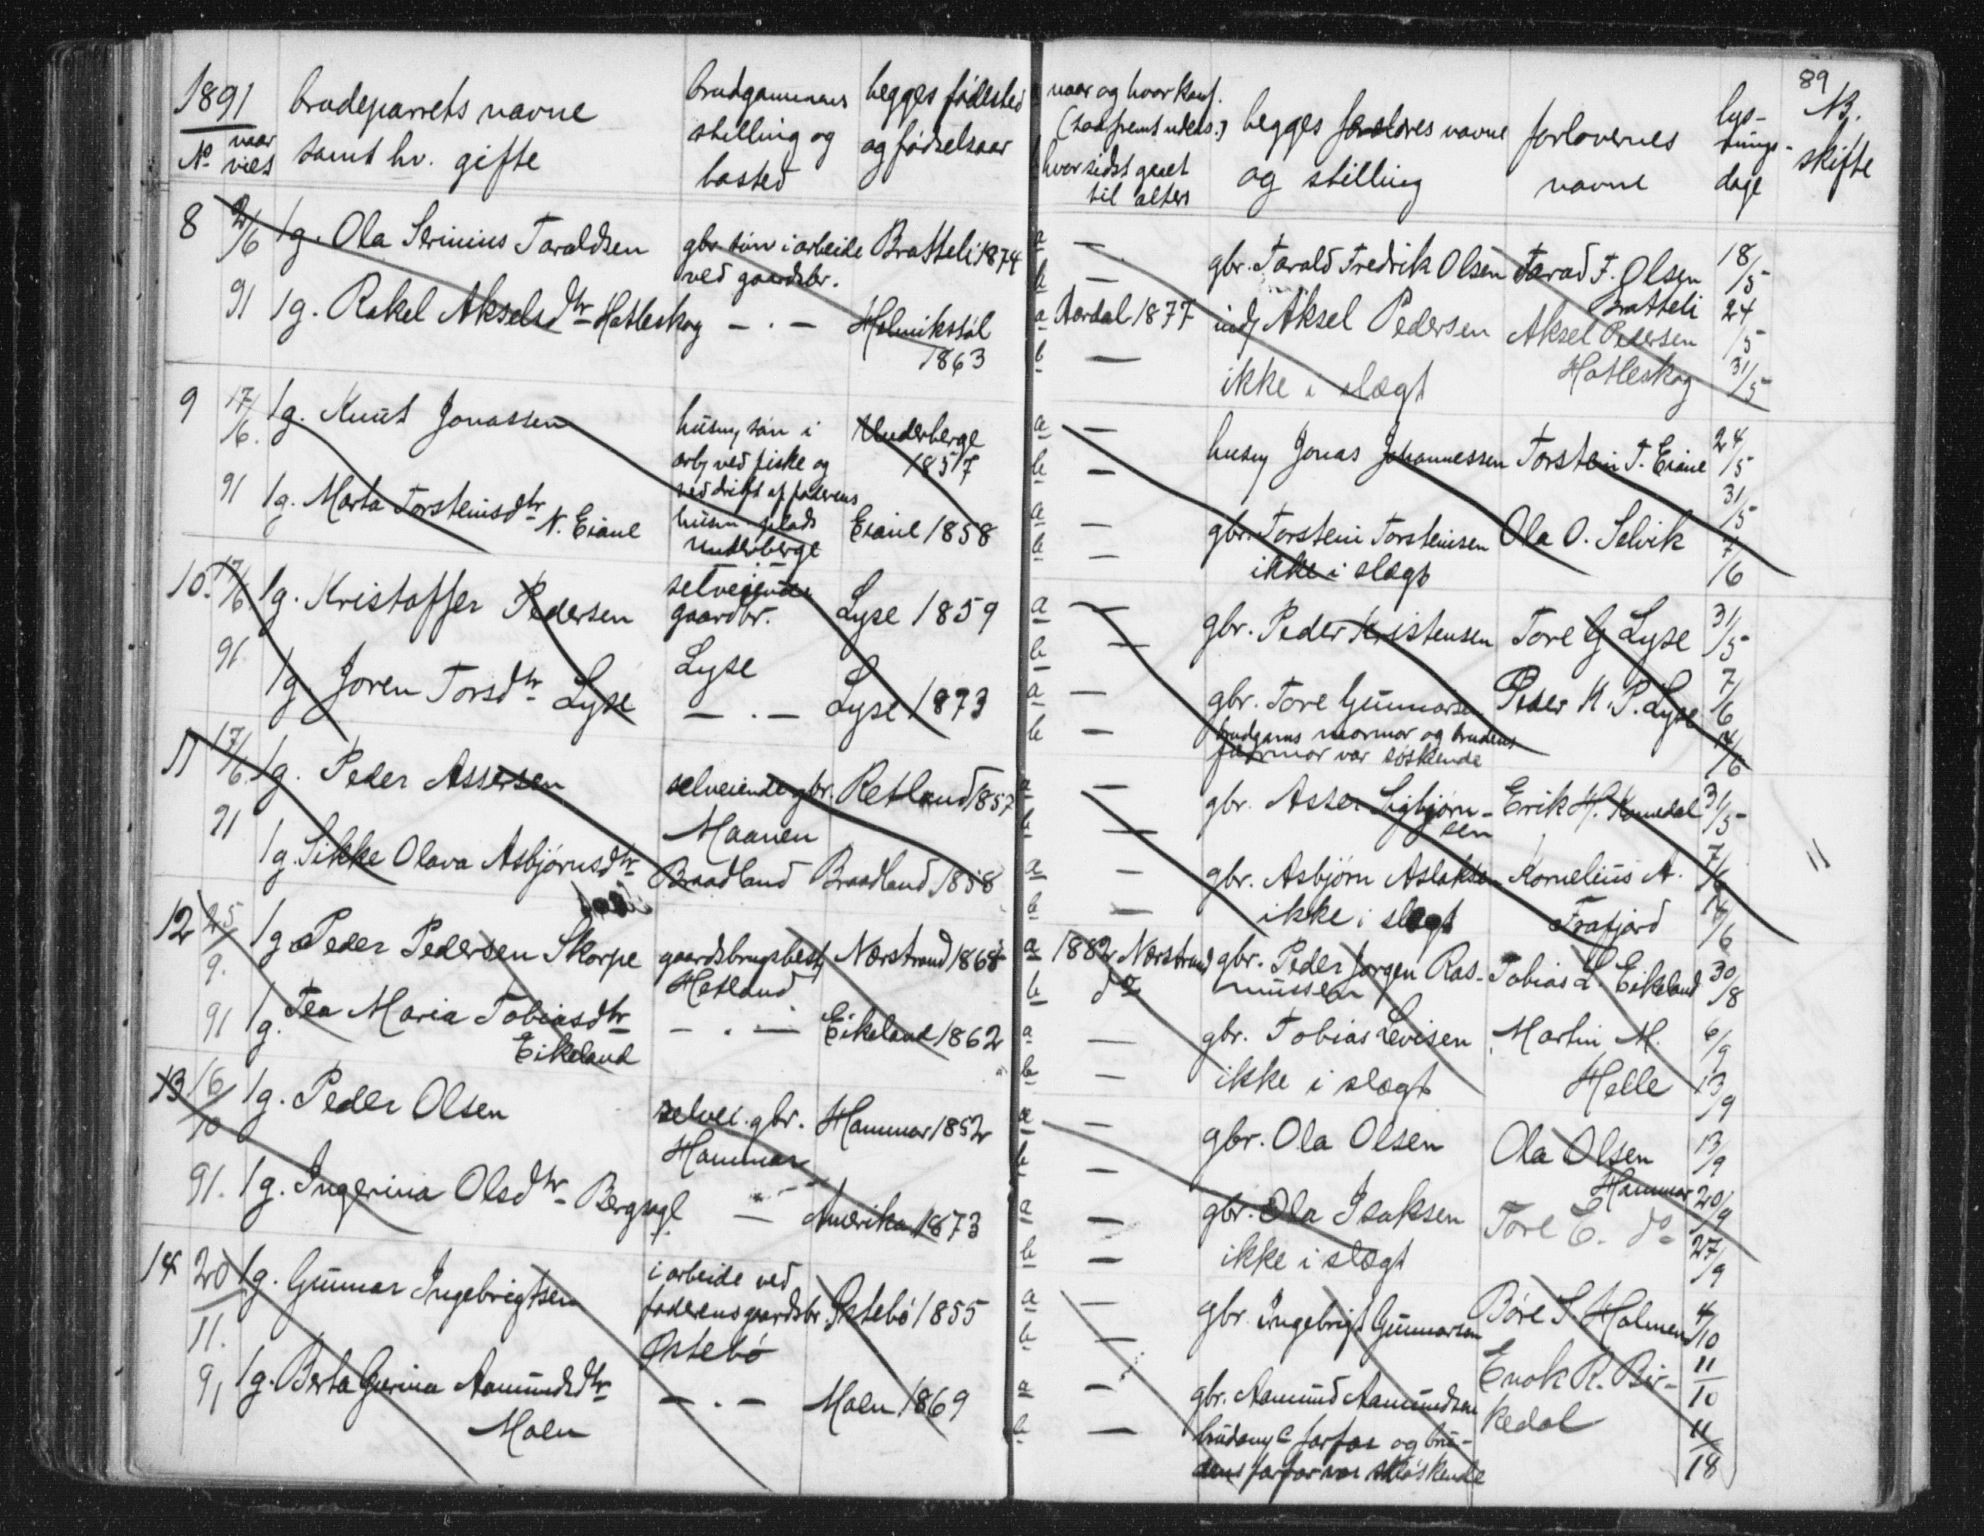 89
1891
No
naar
viet
brudeparrets navne
samt hv. gifte
brudgommens
stilling og
bosted
begges fødested
og fødselsaar
naar og hvor konf.
(saafremt udens.)
hvor sidst gaaet
til alters
begges forældres navne
og stilling
forlovernes
navne
lys-
nings-
dage
NB.
skifte
8 2/6 1g. Ola Serinius Taraldsen gbr. søn i arbeide Bratteli 1874 a — gbr. Tarald Fredrik Olsen Tarad F. Olsen 18/5
ved gaardsbr. b — Bratteli
91 1g. Rakel Akselsdtr Hatleskog — . — Holmikstøl a Aardal 1877 indj Aksel Pedersen Aksel Pedersen 24/5
1863 b — ikke i slægt Hatleskog 31/5
9 17/6. 1g. Knut Jonassen husm, søn i Underberge a — husm Jonas Johannessen Torstein T. Eiane 24/5
arb ved fiske og 1857 b —
91 1g. Marta Torsteinsdtr N. Eiane ved drift af faderens a — 31/5
husm. plads Eiane 1858 gbr. Torstein Torsteinsen Ola O. Selvik 7/6
Underberge b — ikke i slægt
10. 17/6 1g. Kristoffer Pedersen selveiende Lyse 1859 a — gbr. Peder Kristensen Tore G Lyse 31/5
gaardbr. b —
91 1g. Joren Torsdtr Lyse Lyse a — gbr. Tore Gunnarsen Peder K. P. Lyse 7/6
— . — Lyse 1873 b — brudgoms mormor og brudens 14/6
farmor var søskende
11 17/6. 1g. Peder Assersen selveiende gbr. Retland 1857 a — gbr. Asser Sigbjørn- Erik H. Komedal 31/5
Maanen b — sen
91 1g. Sikke Olava Asbjørnsdtr Braadland Braadland 1858 a — gbr. Asbjørn Aslaksen Kornelius A. 7/6 11
b — ikke i slægt Frafjord 14/6
12 25/9. 1g. Peder Pedersen Skorpe gaardsbrugsbest Nærstrand 1868 a 1882 Nærstrand gbr. Peder Jørgen Ras- Tobias L. Eikeland 30/8
Hetland b do mussen
91 1g. Tea Maria Tobiasdtr — . — Eikeland 1862 a — gbr. Tobias Levisen Martin M. 6/9
Eikeland b — ikke i slægt Helle 13/9
13 16/10 1g. Peder Olsen selvei. gbr. Hammar 1852 a — gbr. Ola Olsen Ola Olsen 13/9
Hammar b — Hammar
91. 1g. Ingerina Olsdtr Bergsagl — Amerika 1873 a — gbr. Ola Isaksen Tore E. do 20/9
b — ikke i slægt 27/9
14 20/11. 1g. Gunnar Ingebrigtsen i arbeide ved a — gbr. Ingebrigt Gunnarsen Børe S Holmen 4/10
faderens gaardsbr Østebø 1855 b —
Østebø
91 1g. Berta Gurina Aamundsdtr — . — Moen 1869 a — gbr. Aamund Aamundsen Enok R. Bir- 11/10
Moen b — brudgms farfar og bru- kedal 11/18
dens farfar var søskende